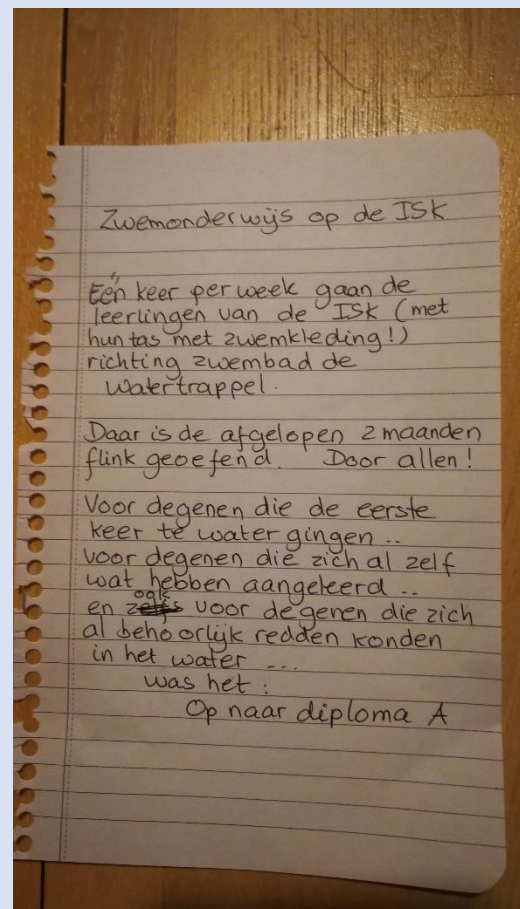 Zwemonderwijs op de ISK
Eén keer per week gaan de
leerlingen van de ISK (met
hun tas met zwemkleding!)
richting zwembad de
Watertrappel.
Daar is de afgelopen 2 maanden
flink geoefend. Door allen!
Voor degenen die de eerste
keer te water gingen ..
voor degenen die zich al zelf
wat hebben aangeleerd ..
en ook voor degenen die zich
al behoorlijk redden konden
in het water ...
was het :
Op naar diploma A